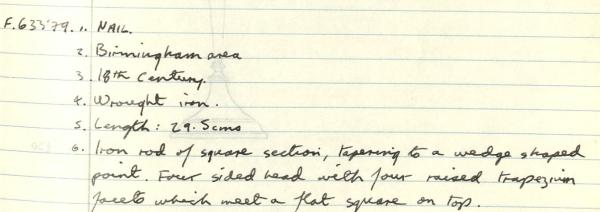 F.633'79. 1. NAIL.
2. Birmingham area
3. 18th Century.
4. Wrought iron.
5. Length: 29.5cms
6. Iron rod of square section, tapering to a wedge shaped
point. Four sided head with four raised trapezium
facets which meet a flat square on top.